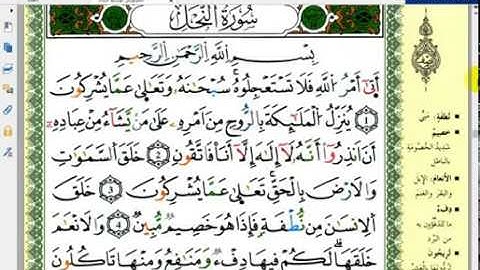 سُورَةُ النَّحْلِ
بِسْمِ اللَّهِ الرَّحْمَٰنِ الرَّحِيمِ
أَتَىٰٓ أَمْرُ اللَّهِ فَلَا تَسْتَعْجِلُوهُ سُبْحَٰنَهُۥ وَتَعَٰلَىٰ عَمَّا يُشْرِكُونَ
١ يُنَزِّلُ الْمَلَٰٓئِكَةَ بِالرُّوحِ مِنْ أَمْرِهِۦ عَلَىٰ مَن يَشَآءُ مِنْ عِبَادِهِۦٓ
أَنْ أَنذِرُوٓا۟ أَنَّهُۥ لَآ إِلَٰهَ إِلَّآ أَنَا۠ فَاتَّقُونِ ٢ خَلَقَ السَّمَٰوَٰتِ
وَالْأَرْضَ بِالْحَقِّ تَعَٰلَىٰ عَمَّا يُشْرِكُونَ ٣ خَلَقَ
الْإِنسَٰنَ مِن نُّطْفَةٍ فَإِذَا هُوَ خَصِيمٌ مُّبِينٌ ٤ وَالْأَنْعَٰمَ
خَلَقَهَا لَكُمْ فِيهَا دِفْءٌ وَمَنَٰفِعُ وَمِنْهَا تَأْكُلُونَ
نُطْفَةٍ: مَنِيٍّ
خَصِيمٌ
شَدِيدُ الْخُصُومَةِ
بِالْبَاطِلِ
الْأَنْعَامَ: الْإِبِلَ
وَالْبَقَرَ وَالْغَنَمَ
دِفْءٌ
مِنَ الْبَرْدِ
تُرِيحُونَ